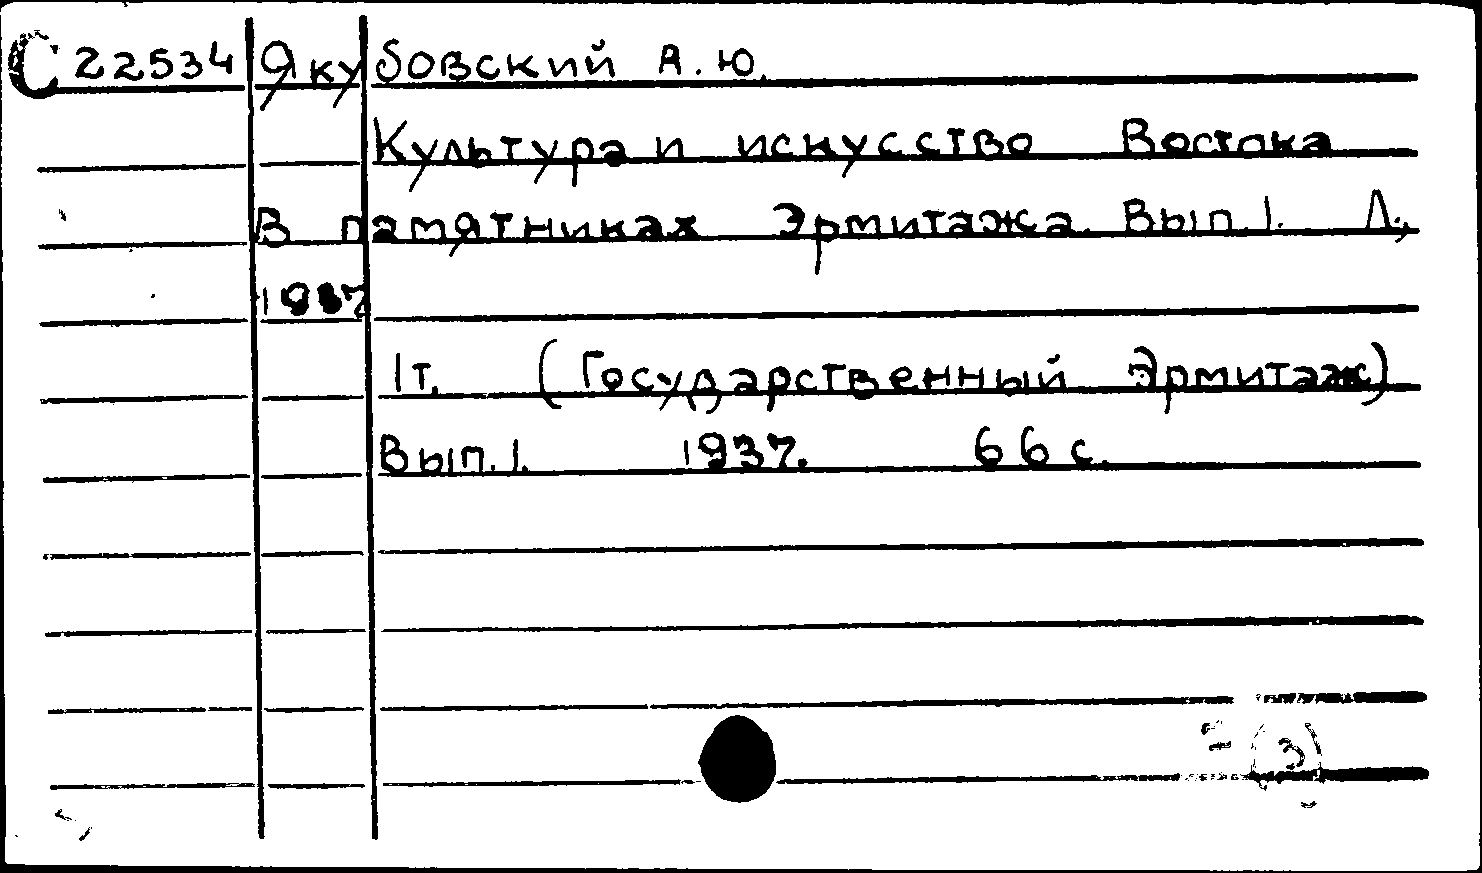 С 22534 Якубовский А.Ю.
Культура и искусство Востока
в памятниках Эрмитажа. Вып. 1. Л.,
1937
1т. (Государственный Эрмитаж)
Вып. 1. 1937. 66 с.
3